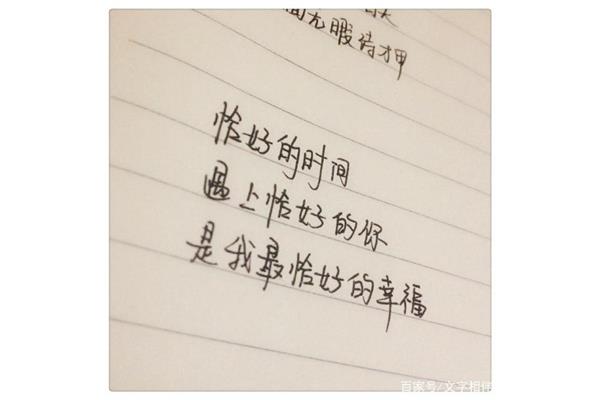 无暇待押
恰好的时间
遇上恰好的你
是我最恰好的幸福
百家号/文字相伴